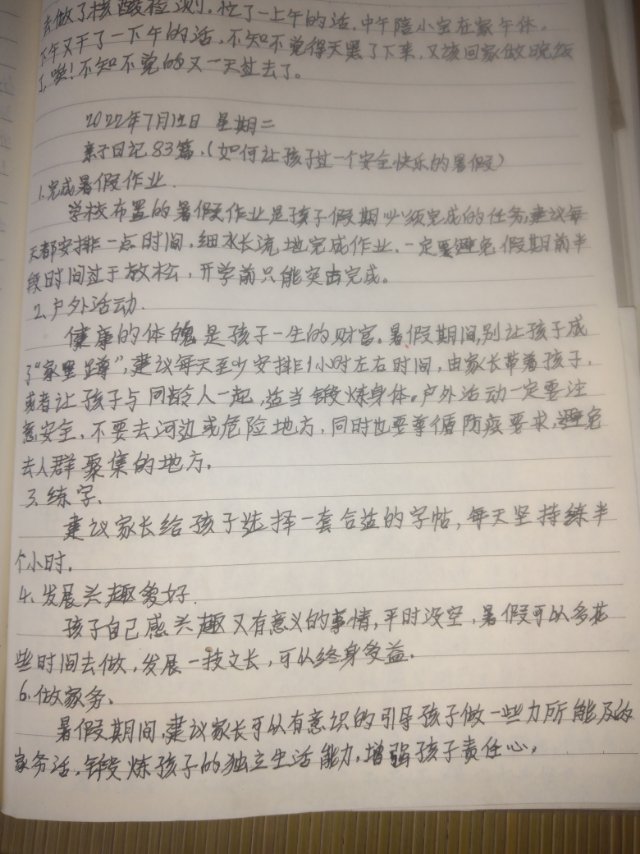 去做了核酸检测，忙了一上午的活，中午陪小宝在家午休，
下午又干了一下午的活，不知不觉得天黑了下来，又该回家做晚饭
了，唉！不知不觉的又一天过去了。
2022年7月12日 星期二
亲子日记83篇，（如何让孩子过一个安全快乐的暑假）
1.完成暑假作业．
学校布置的暑假作业是孩子假期必须完成的任务，建议每
天都安排一点时间，细水长流地完成作业、一定要避免假期前半
段时间过于放松，开学前只能突击完成。
2.户外活动．
健康的体魄是孩子一生的财富。暑假期间，别让孩子成
了“家里蹲”，建议每天至少安排1小时左右时间，由家长带着孩子，
或者让孩子与同龄人一起，适当锻炼身体。户外活动一定要注
意安全，不要去河边或危险地方，同时也要尊循防疫要求，避免
去人群聚集的地方，
3.练字、
建议家长给孩子选择一套合适的字帖，每天坚持练半
个小时．
4.发展兴趣爱好．
孩子自己感兴趣又有意义的事情，平时没空，暑假可以多花
些时间去做，发展一技之长，可以终身受益．
6.做家务、
暑假期间，建议家长可以有意识的引导孩子做一些力所能及的
家务活，锻炼孩子的独立生活能力，增强孩子责任心，